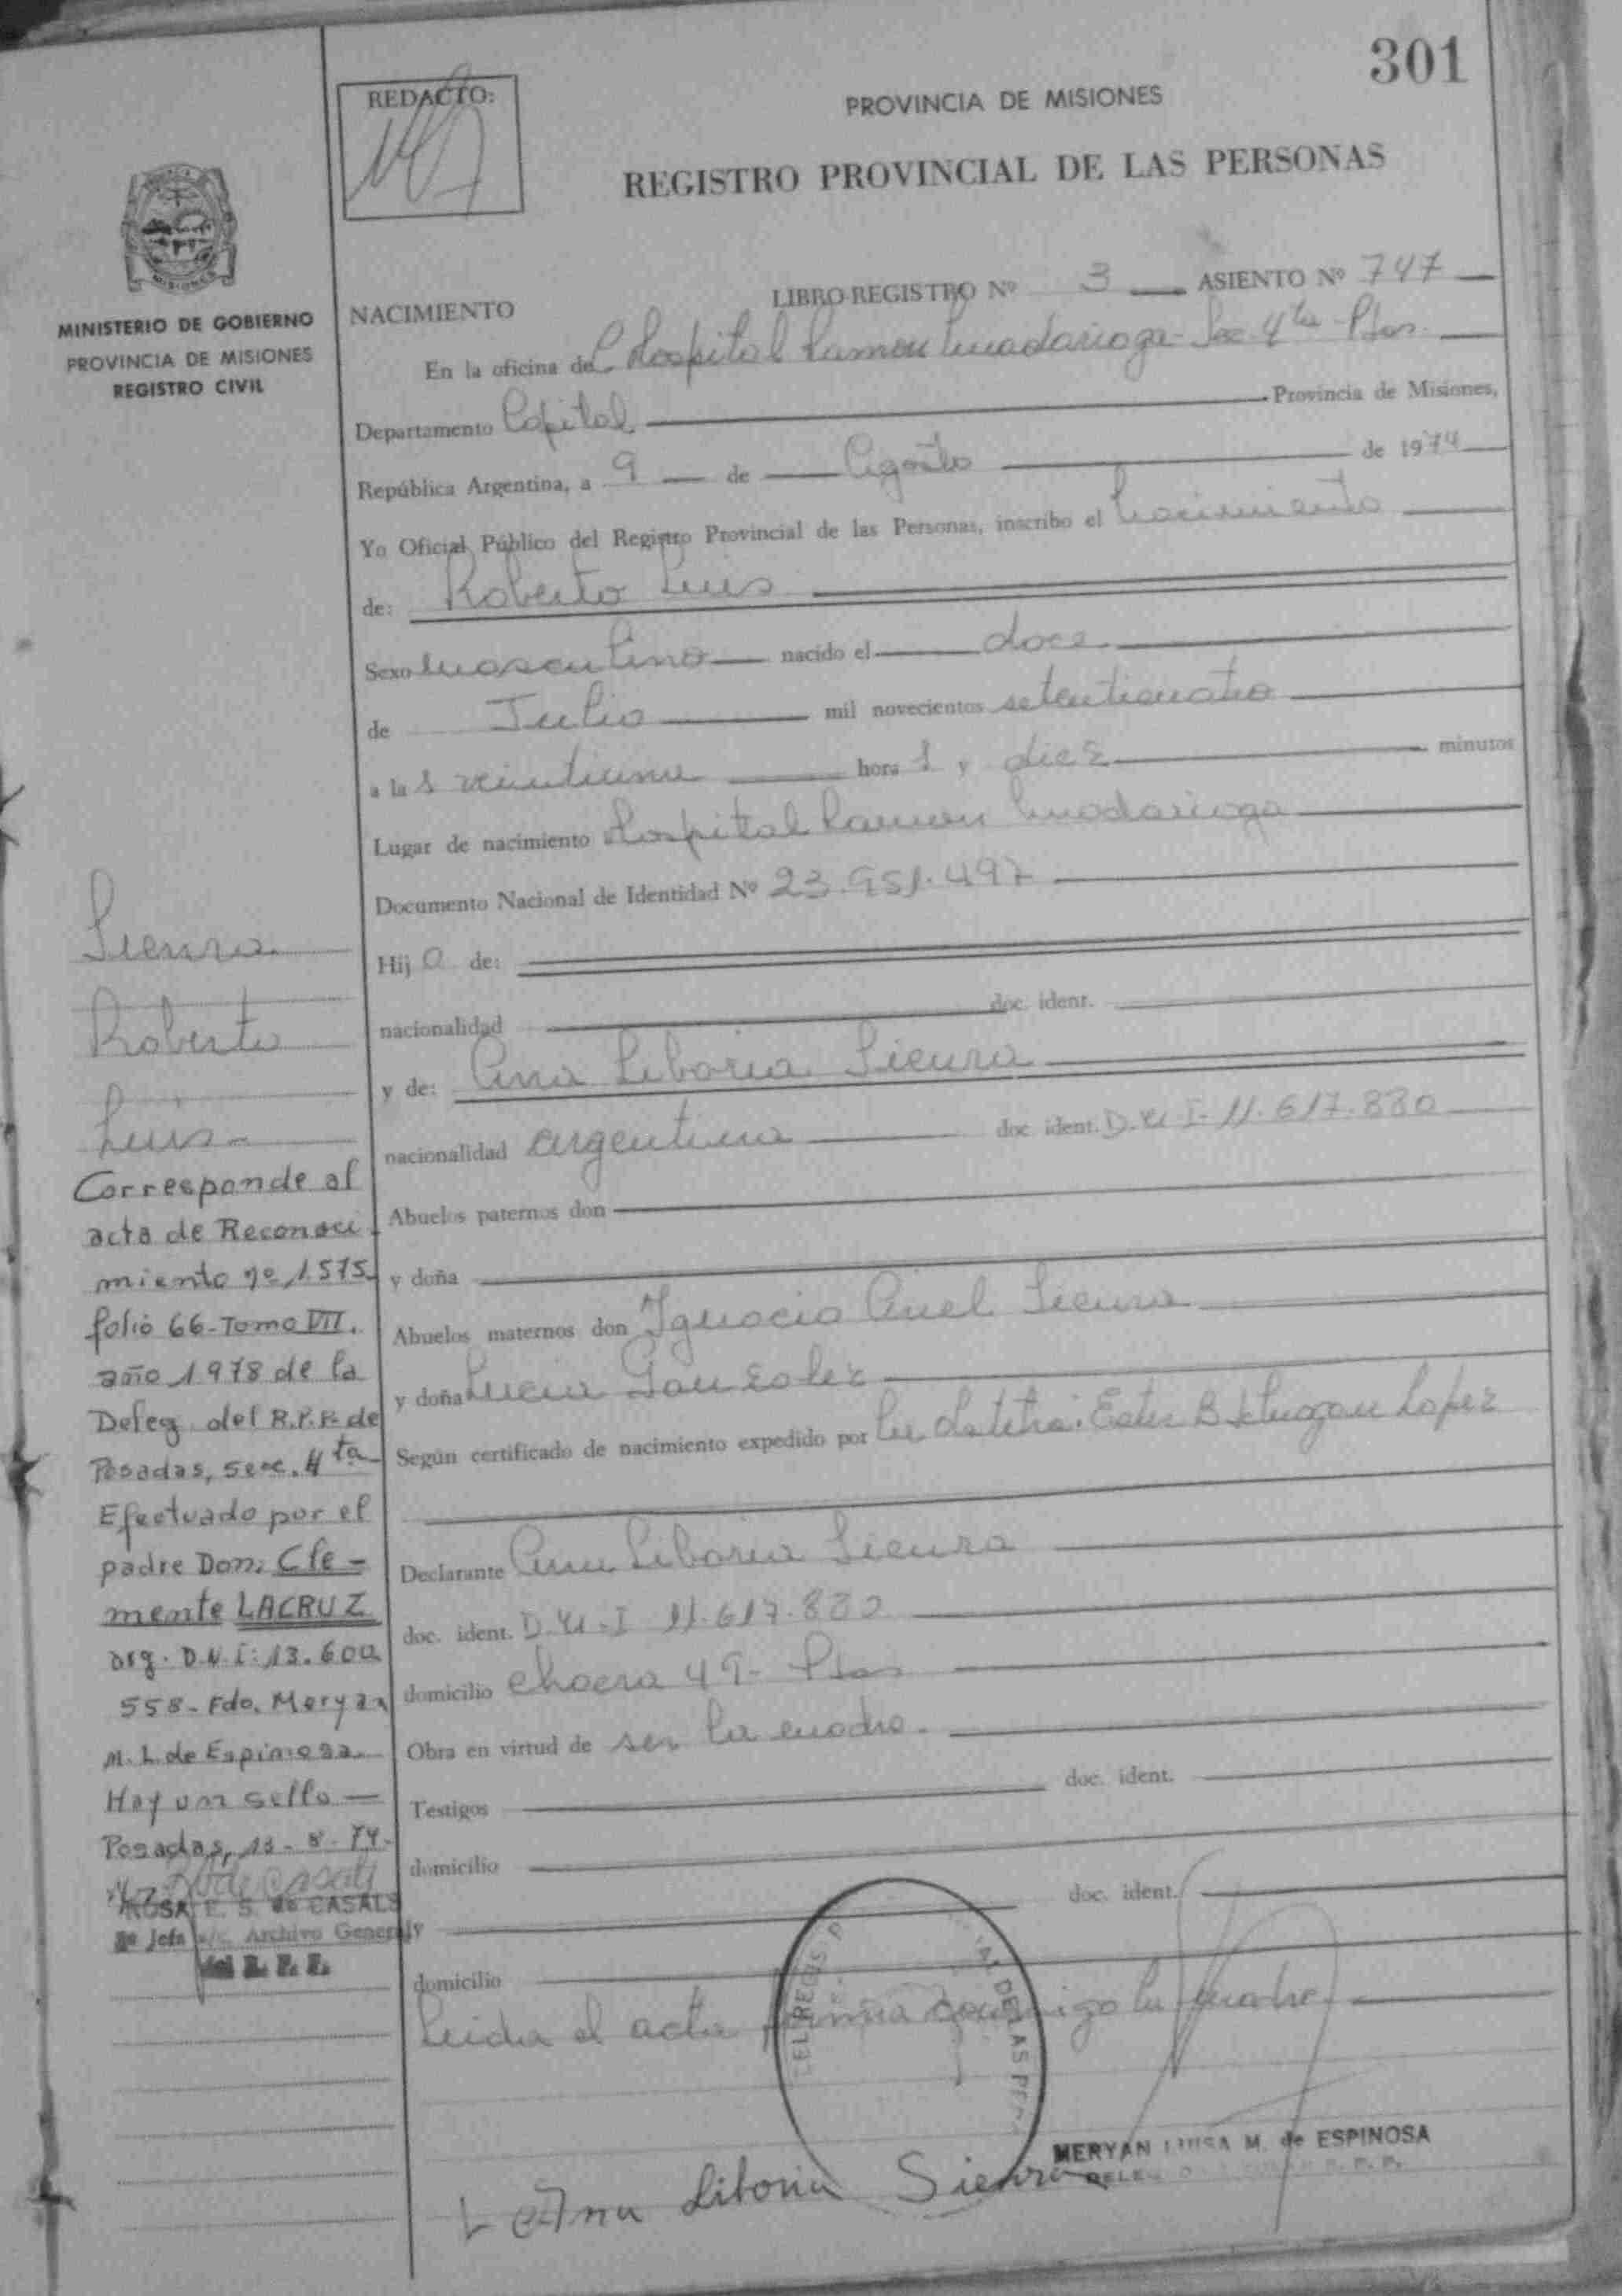 301
REDACTO:
PROVINCIA DE MISIONES
REGISTRO PROVINCIAL DE LAS PERSONAS
MISIONES
MINISTERIO DE GOBIERNO
PROVINCIA DE MISIONES
REGISTRO CIVIL
NACIMIENTO
LIBRO-REGISTRO Nº 3 ASIENTO Nº 747
En la oficina del Hospital Ramon Madariaga - Sec 4ta - Pdas.
Departamento Capital Provincia de Misiones,
República Argentina, a 9 de Agosto de 1974
Yo Oficial Público del Registro Provincial de las Personas, inscribo el Nacimiento
de: Roberto Luis
Sexo masculino nacido el doce
de Julio mil novecientos setenticuatro
a las veintiuna horas y diez minutos
Lugar de nacimiento Hospital Ramon Madariaga
Documento Nacional de Identidad Nº 23.951.497
Hijo de:
nacionalidad doc. ident.
y de: Ana Liboria Sienra
nacionalidad argentina doc ident. D.N.I- 11.617.880
Abuelos paternos don
y doña
Abuelos maternos don Ignacio Sienra
y doña Lucia Gonzalez
Según certificado de nacimiento expedido por la Obstetra: Ester B Lopez
Declarante Ana Liboria Sienra
doc. ident. D.N.I 11.617.880
domicilio chacra 49- Pdas
Obra en virtud de ser la madre.
Testigos doc. ident.
domicilio
y doc. ident.
domicilio
Leida el acta firma conmigo la madre
Ana Liboria Sienra
MERYAN LUISA M. de ESPINOSA
Sienra
Roberto
Luis-
Corresponde al
acta de Reconoci
miento nº 1575
folio 66-Tomo VII.
año 1978 de la
Deleg. del R.P.P. de
Posadas, secc. 4ta
Efectuado por el
padre Don: Cle-
mente LACRUZ
arg. D.N.I: 13.600
558- Fdo. Meryan
M. L. de Espinosa
Hay un sello
Posadas,
ROSA E. S. de CASALS
Jefa a/c. Archivo General
del R. P. P.
DEL REGIS. P
AL DE LAS PER